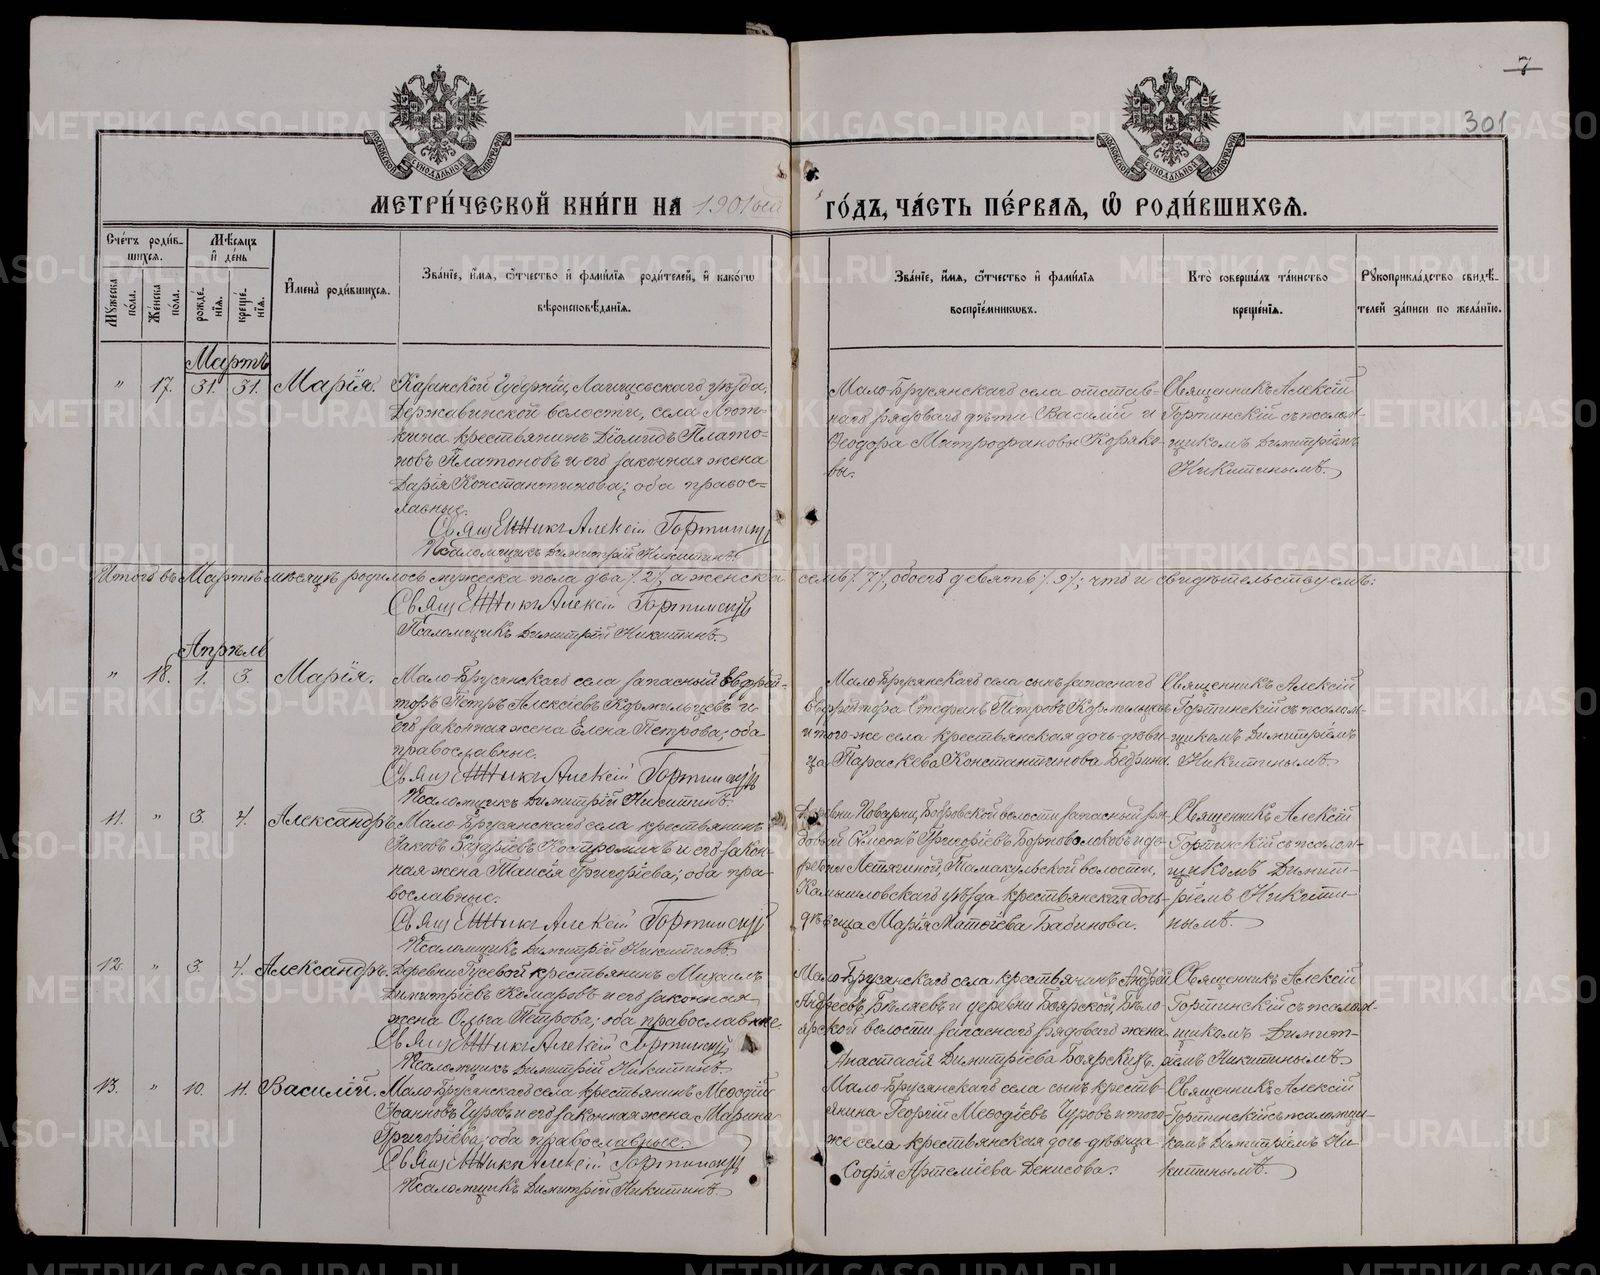 7
301
МОСКОВСКОЙ СУНОДАЛЬНОЙ ТИПОГРАФІИ
МОСКОВСКОЙ СУНОДАЛЬНОЙ ТИПОГРАФІИ
МЕТРИ́ЧЕСКОЙ КНИ́ГИ НА 1901ый ГО́ДЪ, ЧА́СТЬ ПЕ́РВАЯ, Ѡ РОДИ́ВШИХСЯ.
Сче́тъ роди́вшихся.
Мꙋжеска по́ла.
Же́нска по́ла.
Мѣ́сяцъ и де́нь
рожде́нія.
креще́нія.
И́мена̀ роди́вшихся.
Зва́ніе, и́мя, о́тчество и фами́лія роди́телей, и како́гѡ
вѣроисповѣ́данія.
Зва́ніе, и́мя, о́тчество и фами́лія
воспріе́мникѡвъ.
Кто̀ соверша́лъ та́инство
креще́нія.
Рꙋкоприкла́дство свидѣ́телей за́писи по жела́нію.
Мартъ
" 17. 31. 31. Марія.
Казанской Губерніи, Лаишевскаго уѣзда,
Державинской волости, села
крестьянинъ Діомидъ Плато-
новъ Платоновъ и его законная жена
Дарія Константинова; оба правос-
лавные.
Священникъ Алексій Гортинскій
Псаломщикъ Димитрій Никитинъ.
Мало-Брусянскаго села отстав-
наго рядоваго дѣти Василій и
Ѳеодора Митрофановы Коряко-
вы.
Священникъ Алексій
Гортинскій съ псалом-
щикомъ Димитріемъ
Никитинымъ.
Итого въ Мартѣ мѣсяцѣ родилось мужеска пола два /2/, а женска семь /7/, обоего девять /9/; что и свидѣтельствуемъ:
Священникъ Алексій Гортинскій
Псаломщикъ Димитрій Никитинъ.
Апрѣль
" 18. 1. 3. Марія.
Мало-Брусянскаго села запасный Ефрей-
торъ Петръ Алексіевъ Кормильцевъ и
его законная жена Елена Петрова; оба
православные.
Священникъ Алексій Гортинскій
Псаломщикъ Димитрій Никитинъ.
Мало-Брусянскаго села сынъ запаснаго
Ефрейтора Стефанъ Петровъ Кормильцевъ
и того-же села крестьянская дочь-дѣви-
ца Параскева Константинова Бедрина.
Священникъ Алексій
Гортинскій съ псалом-
щикомъ Димитріемъ
Никитинымъ.
11. " 3. 4. Александръ.
Мало-Брусянскаго села крестьянинъ
Іаковъ Костроминъ и его закон-
ная жена Таисія Григоріева; оба пра-
вославные.
Священникъ Алексій Гортинскій
Псаломщикъ Димитрій Никитинъ.
Деревни Поварни, Бобровской волости запасный ря-
довой Сѵмеонъ Григоріевъ Борноволоковъ и де-
ревни Метягиной, Тамакульской волости,
Камышловскаго уѣзда крестьянская дочь-
дѣвица Марія Матѳіева Бабинова.
Священникъ Алексій
Гортинскій съ псалом-
щикомъ Димит-
ріемъ Никити-
нымъ.
12. " 3. 4. Александръ.
Деревни Гусевой крестьянинъ Михаилъ
Димитріевъ Комаровъ и его законная
жена Ольга Петрова; оба православные.
Священникъ Алексій Гортинскій
Псаломщикъ Димитрій Никитинъ.
Мало-Брусянскаго села крестьянинъ Андрей
Андреевъ Бѣляевъ и деревни Боярской, Бѣло-
ярской волости запаснаго рядоваго жена
Анастасія Димитріева Боярскихъ.
Священникъ Алексій
Гортинскій съ псалом-
щикомъ Димит-
ріемъ Никитинымъ.
13. " 10. 11. Василій.
Мало-Брусянскаго села крестьянинъ Меѳодій
Іоанновъ Чуровъ и его законная жена Марина
Григоріева; оба православные.
Священникъ Алексій Гортинскій
Псаломщикъ Димитрій Никитинъ.
Мало-Брусянскаго села сынъ кресть-
янина Георгій Меѳодіевъ Чуровъ и того-
же села крестьянская дочь-дѣвица
Софія Артеміева Денисова.
Священникъ Алексій
Гортинскій съ псаломщи-
комъ Димитріемъ Ни-
китинымъ.
METRIKI.GASO-URAL.RU